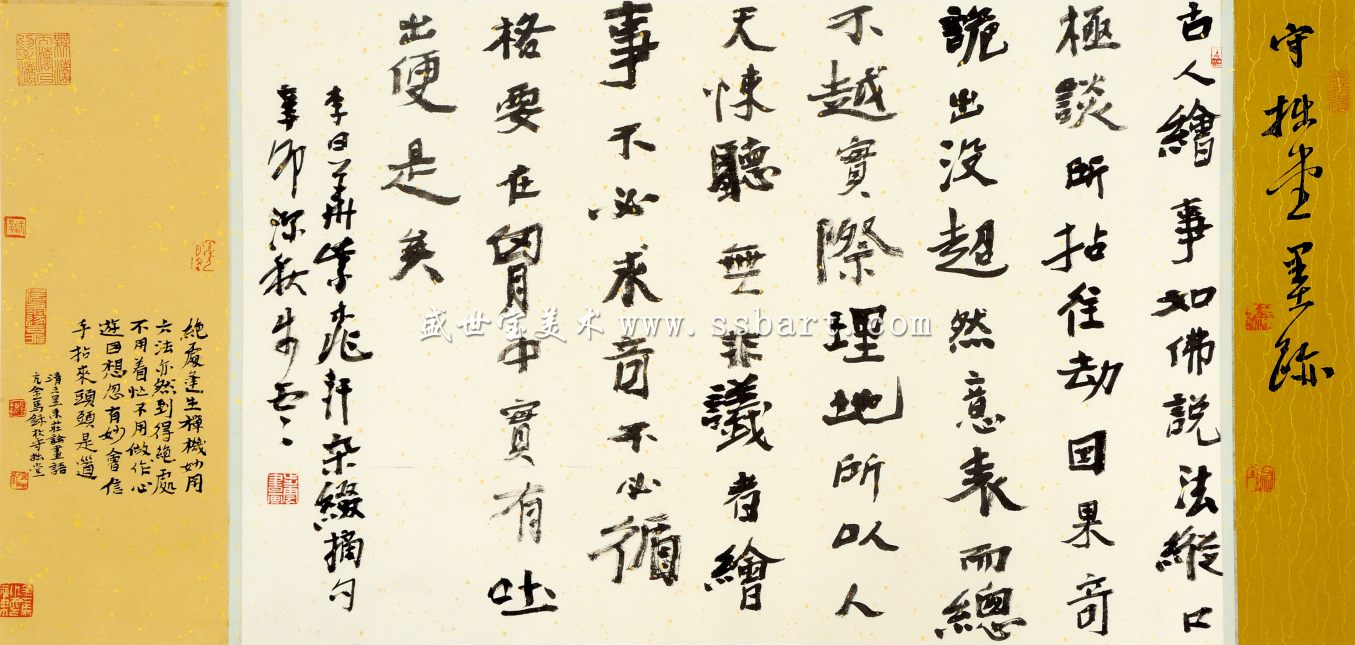 守拙堂墨跡
古人繪事如佛説法縱口
極談所拈往劫因果奇
詭出没超然意表而總
不越實際理地所以人
天悚聽無非議者繪
事不必求奇不必循
格要在胷中實有吐
出便是矣
李日華紫桃軒杂綴摘句
辛卯深秋
絶處逢生禪機妙用
六法亦然到得絶處
不用着忙不用做作心
遊目想忽有妙會信
手拈來頭頭是道
清王昱東莊論畫語
亢金馬録於守拙堂
盛世宝美术 www.ssbart.com